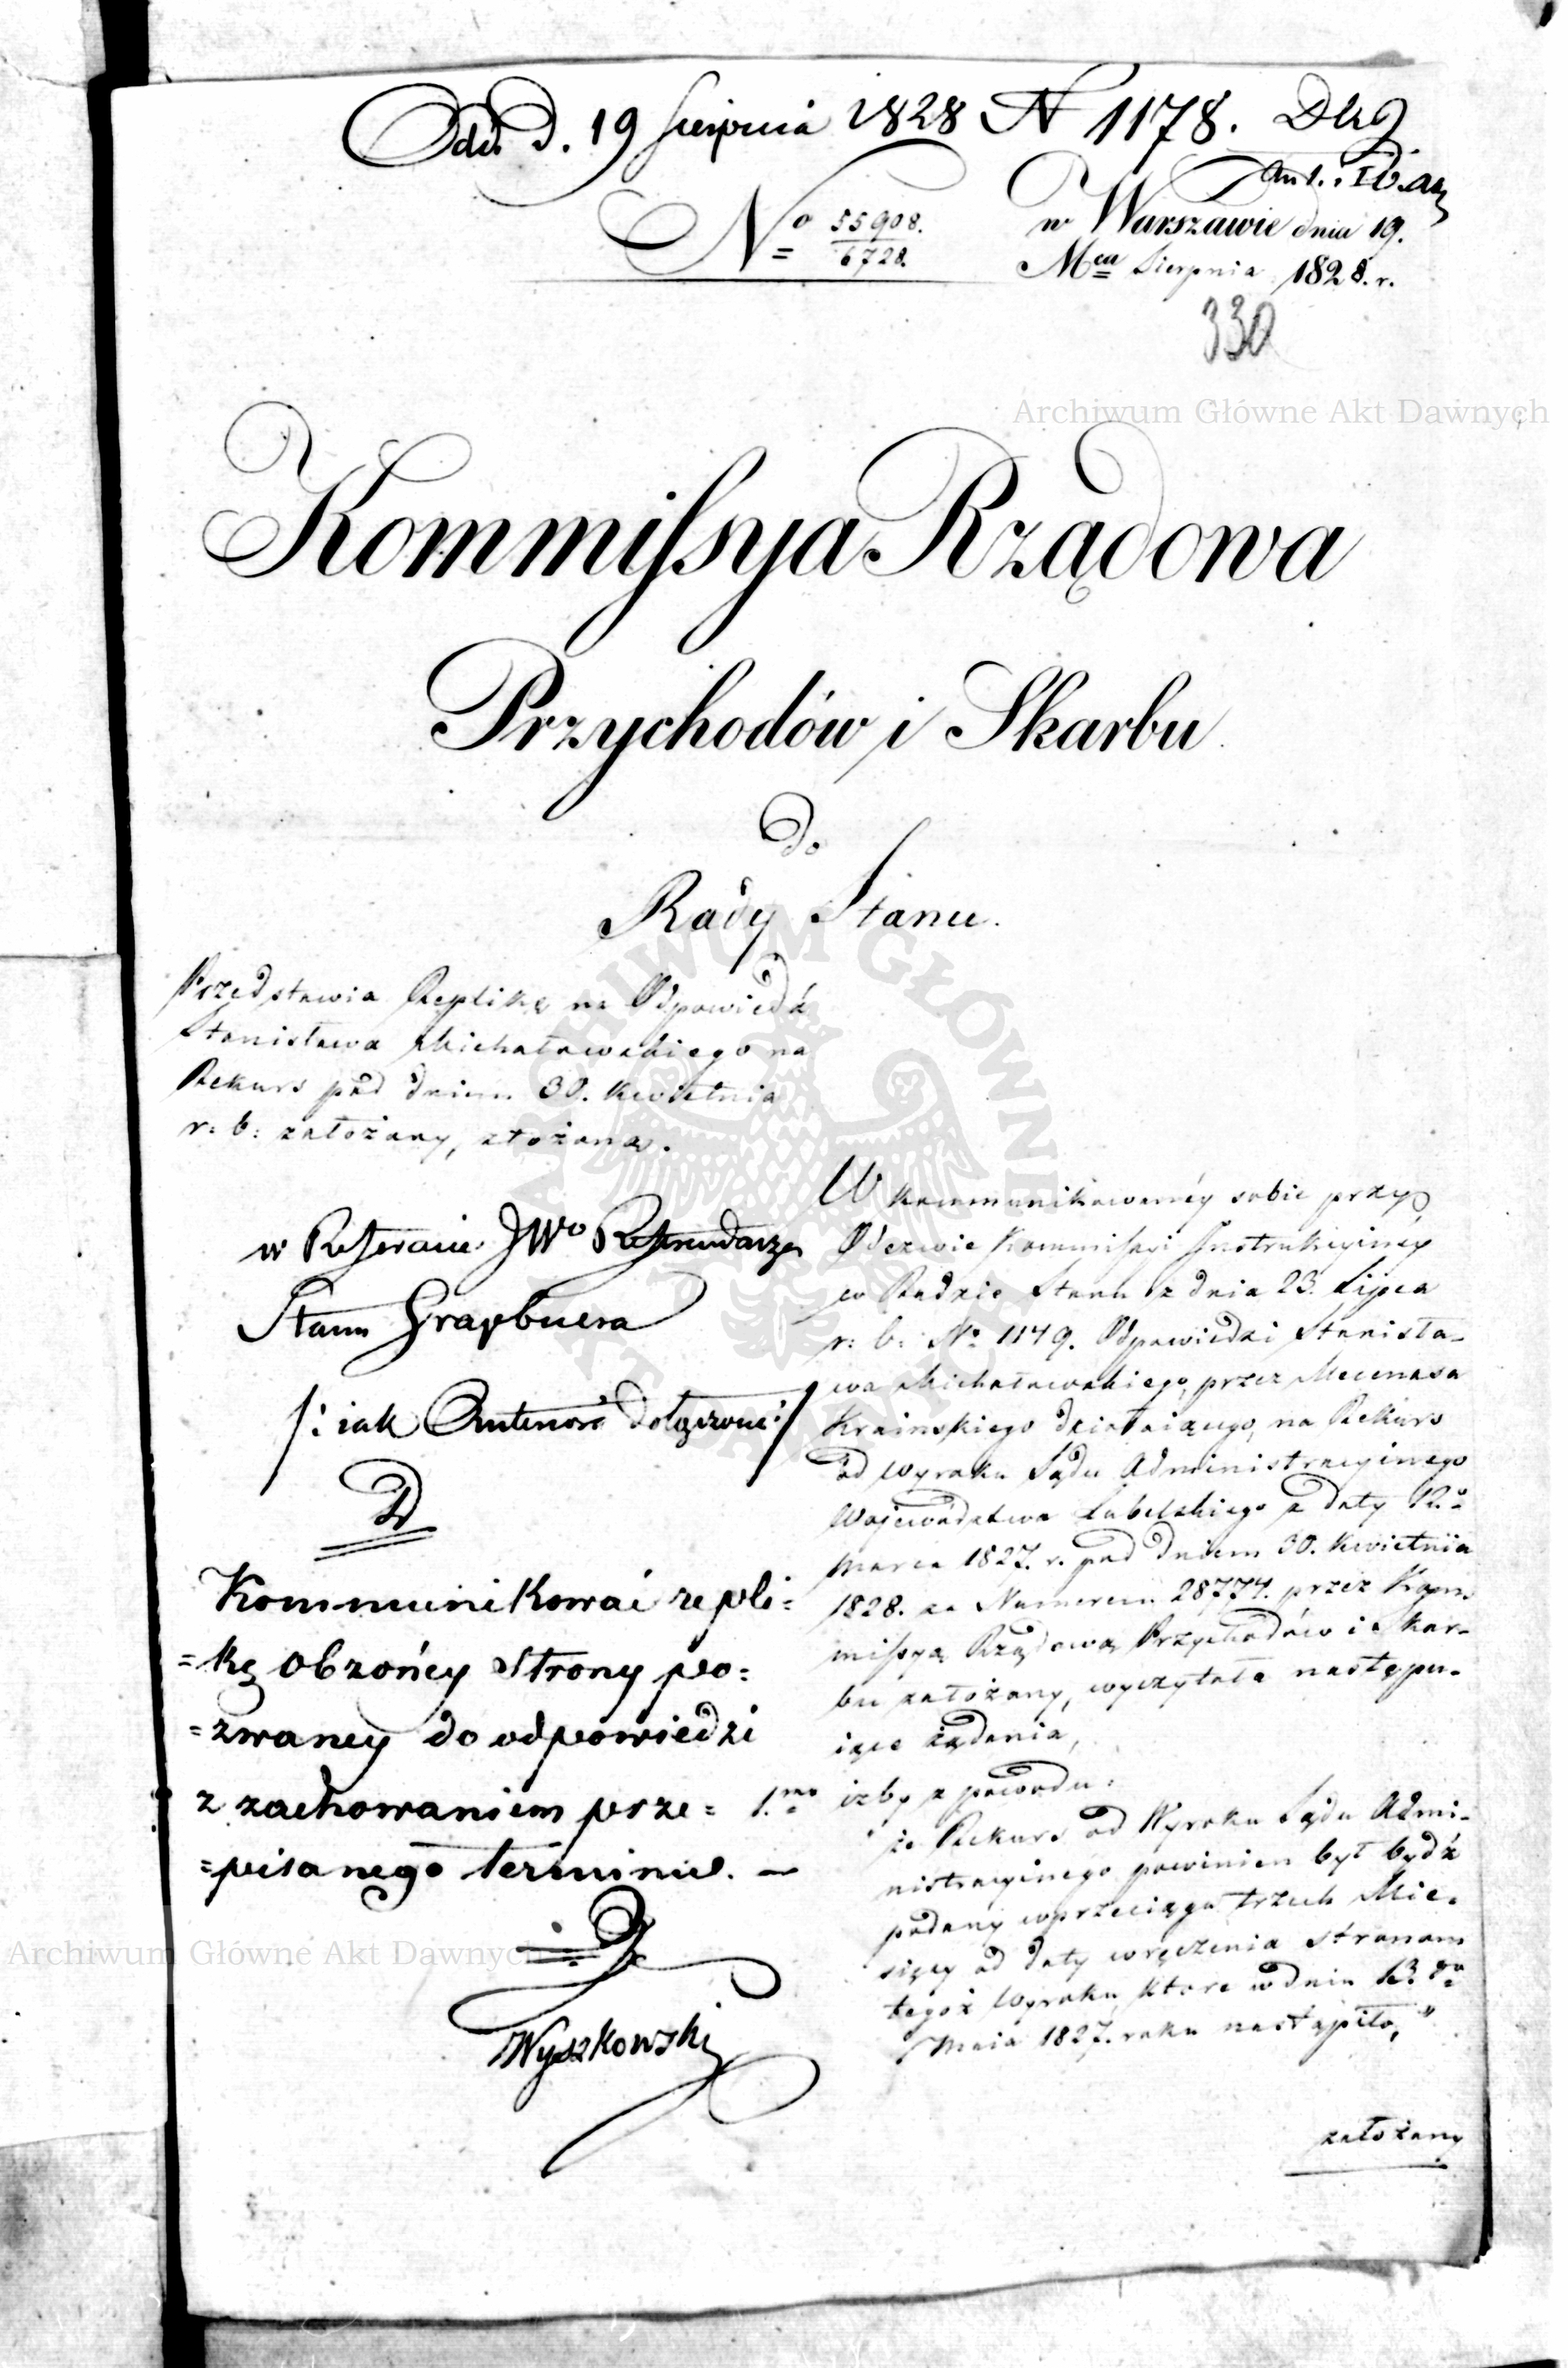 Odd. D. 19 Sierpnia 1828 N 1178. Dkg
Ant. :
No 55908.
6728.
w Warszawie dnia 19.
Mca Sierpnia 1828. r.
330
Archiwum Główne Akt Dawnych
Kommissya Rządowa
Przychodów i Skarbu
do
Rady Stanu.
Przedstawia Replikę na Odpowiedź
Stanisława Michałowskiego na
Rekurs pod dniem 30. Kwietnia
r: b: założony, złożoną.
w Referacie JWo Referendarza
Stanu Graybnera
/: iak Antenora dołączone :/
Kommunikować repli=
=kę obrońcy strony po=
=zwaney do odpowiedzi
z zachowaniem prze=
=pisanego terminu. —
Wyszkowski
W kommunikowanéy sobie przy
Odezwie Kommissyi Instrukcyinéy
w Radzie Stanu z dnia 23. Lipca
r: b: No 1149. Odpowiedzi Stanisła-
wa Michałowskiego, przez Mecenasa
Krainskiego działaiącego, na Rekurs
od wyroku Sądu Administracyinego
Województwa Lubelskiego z daty 12.o
Marca 1827. r. pod dniem 30. Kwietnia
1828. za Numerem 28774. przez Kom-
missyą Rządową Przychodów i Skar-
bu założony, wyczytała następu-
iące żądania,
iżby z powodu:
1.mo że Rekurs od Wyroku Sądu Admi-
nistracyinego powinien był bydź
podany wprzeciągu trzech Mie-
sięcy od daty wręczenia stronom
tegoż Wyroku, które wdniu 13.go
Maia 1827. roku nastąpiło,"
założony
Archiwum Główne Akt Dawnych
ARCHIWUM GŁÓWNE AKT DAWNYCH